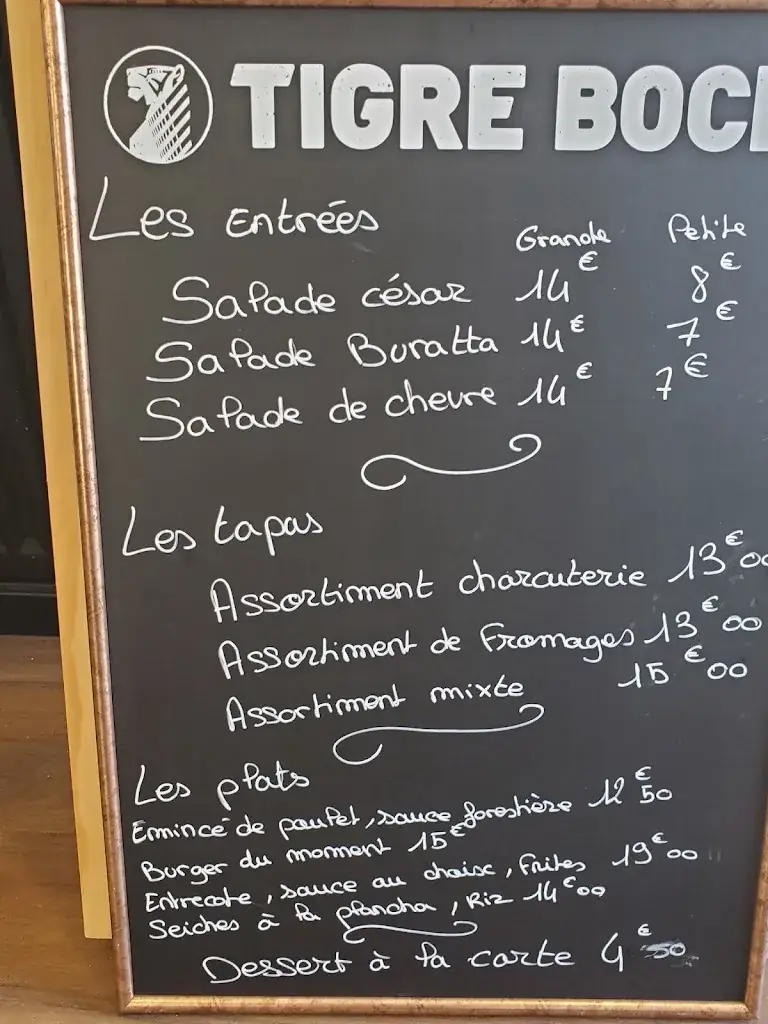 TIGRE BOC
Les Entrées Grande Petite
Salade césar 14€ 8€
Salade Buratta 14€ 7€
Salade de chevre 14€ 7€
Les tapas
Assortiment charcuterie 13€00
Assortiment de Fromages 13€00
Assortiment mixte 15€00
Les plats
Emincé de poulet, sauce forestière 12€50
Burger du moment 15€
Entrecote, sauce au choix, Frites 19€00
Seiches à la plancha, Riz 14€00
Dessert à la carte 4€50